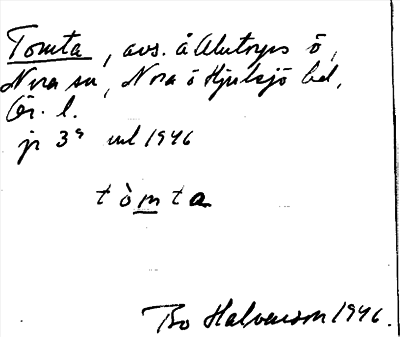 Tomta, avs. å Alntorps ö,
Nora sn, Nora o Hjulsjö bd,
Ör. l.
jr 3ª uul 1946
tòmta
Bo Halvarson 1946.